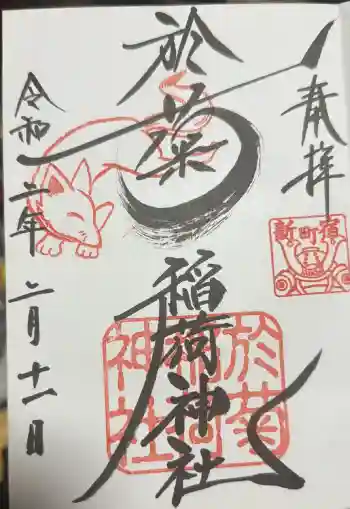 奉拝
新町宿
於菊
稲荷神社
於菊
稲荷
神社
令和二年二月十一日